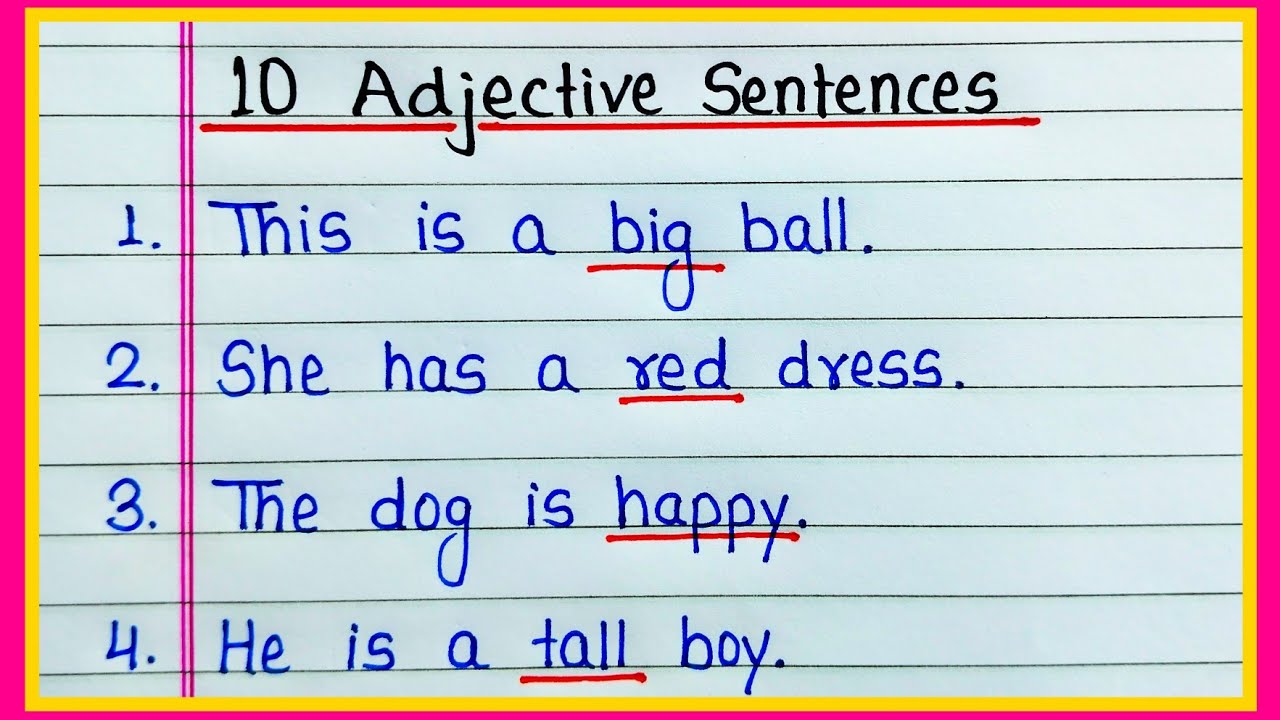 10 Adjective Sentences
1. This is a big ball.
2. She has a red dress.
3. The dog is happy.
4. He is a tall boy.